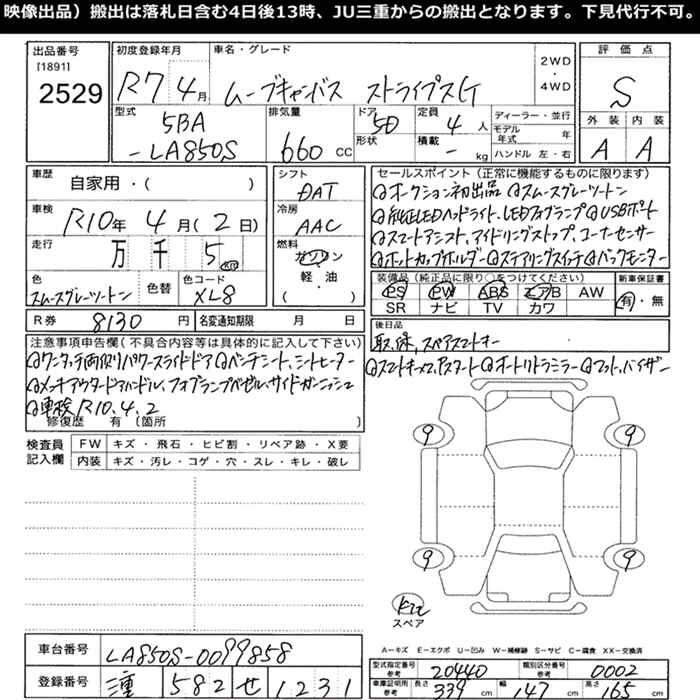 映像出品）搬出は落札日含む4日後13時、JU三重からの搬出となります。下見代行不可。
出品番号
[1891]
2529
初度登録年月
R7 4月
車名・グレード
ムーブキャンバス ストライプスG
2WD
・
4WD
評価点
S
外装 内装
A A
型式
5BA
-LA850S
排気量
660 CC
ドア
5D
形状
定員
4 人
積載
- kg
ディーラー・並行
モデル年式 年
ハンドル 左・右
車歴
自家用・（ ）
車検
R10年 4月（2日）
走行
万 千 5 km
色
スムースグレーツートン
色替
色コード
XL8
シフト
DAT
冷房
AAC
燃料
ガソリン
軽・油
（ ）
R券 8130 円
名変通知期限 月 日
セールスポイント（正常に機能するものに限ります）
◎オークション初出品 ◎スムースグレーツートン
◎純正LEDヘッドライト、LEDフォグランプ ◎USBポート
◎スマートアシスト、アイドリングストップ、コーナーセンサー
◎ホットカップホルダー ◎ステアリングスイッチ ◎バックモニター
装備品（純正品に限り○をつけてください）
PS PW ABS エアB AW
SR ナビ TV カワ
新車保証書
有・無
後日品
取、保、スペアスマートキー
◎スマートキー×2、Pスタート ◎オートリトラミラー ◎マット、バイザー
注意事項申告欄（不具合内容等は具体的に記入して下さい）
◎ワンタッチ両側パワースライドドア ◎ベンチシート、シートヒーター
◎メッキアウタードアハンドル、フォグランプベゼル、サイドガーニッシュ
◎車検 R10.4.2
修復歴 有（箇所 ）
検査員
記入欄
FW キズ・飛石・ヒビ割・リペア跡・X要
内装 キズ・汚レ・コゲ・穴・スレ・キレ・破レ
9 9
9 9
スペア
車台番号 LA850S-0099858
登録番号 三重 582 せ 1231
A―キズ E―エクボ U―凹み W―補修跡 S―サビ C―腐食 XX―交換済
型式指定番号
参考 20440
類別区分番号
参考 0002
車庫証明用
参考 長さ 339 cm 幅 147 cm 高さ 165 cm